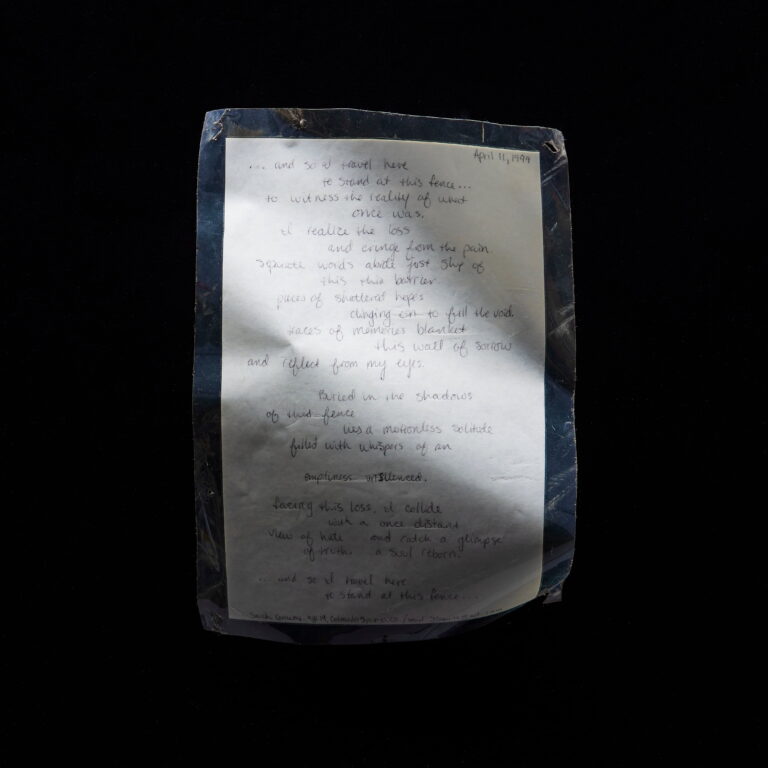 April 11, 1999
... and so I travel here
to stand at this fence...
to witness the reality of what
once was.
I realize the loss
and cringe from the pain.
words abide just shy of
this thin barrier
pieces of shattered hopes
clinging to fill the void.
traces of memories blanket
this wall of sorrow
and reflect from my eyes.
Buried in the shadows
of this fence
lies a motionless solitude
filled with whispers of an
emptiness unsilenced.
facing this loss, I collide
with a once distant
view of hate and catch a glimpse
of truth. a soul reborn.
... and so I travel here
to stand at this fence...